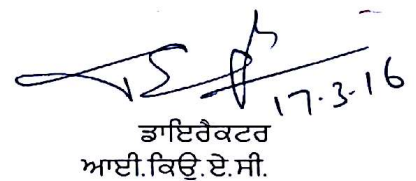 17.3.16
ਡਾਇਰੈਕਟਰ
ਆਈ.ਕਿਊ.ਏ.ਸੀ.